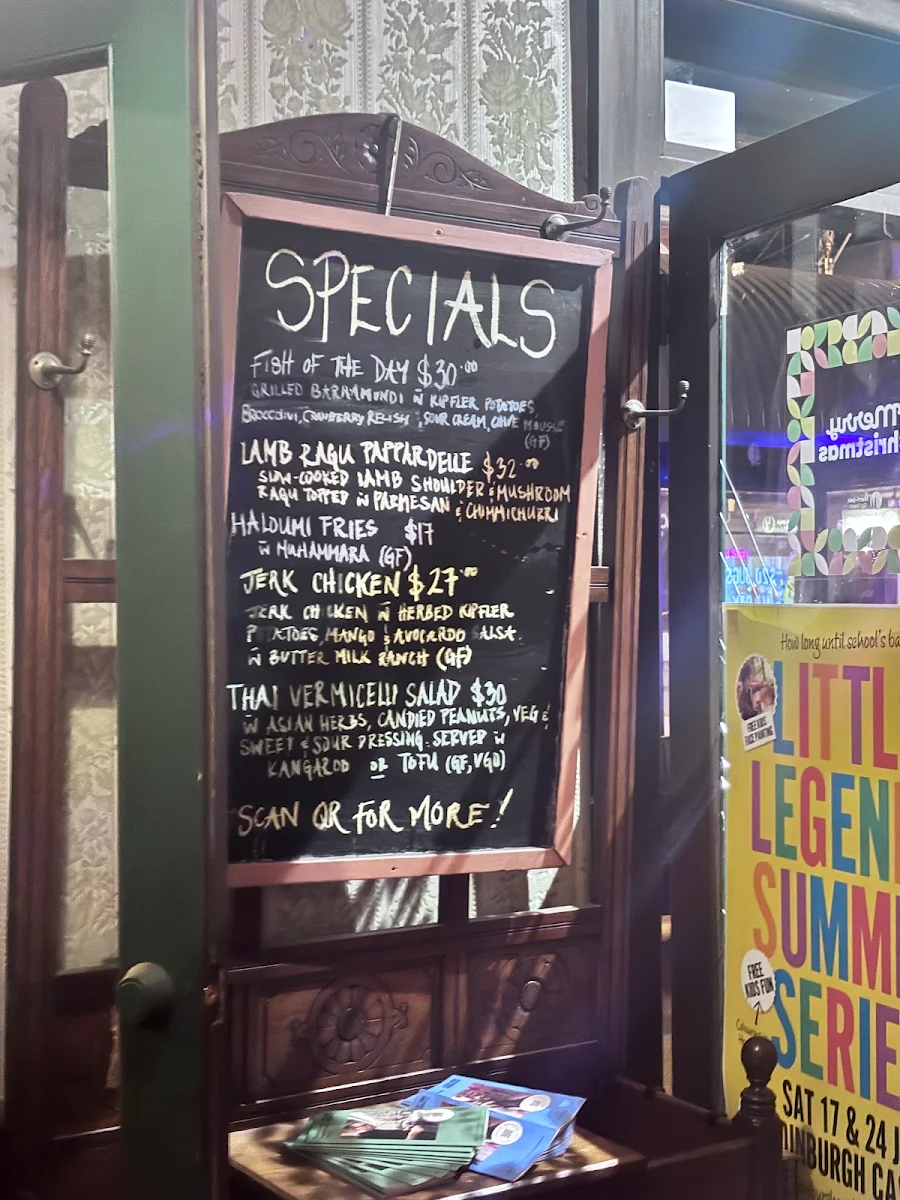 SPECIALS
FISH OF THE DAY $30.00
GRILLED BARRAMUNDI W KIPFLER POTATOES,
BROCCOLINI, CRANBERRY RELISH & SOUR CREAM, CHIVE MOUSSE
(GF)
LAMB RAGU PAPPARDELLE $32.00
SLOW-COOKED LAMB SHOULDER & MUSHROOM
RAGU TOPPED W PARMESAN & CHIMMICHURRI
HALOUMI FRIES $17
W MUHAMMARA (GF)
JERK CHICKEN $27.00
JERK CHICKEN W HERBED KIPFLER
POTATOES, MANGO & AVOCARDO SALSA
W BUTTER MILK RANCH (GF)
THAI VERMICELLI SALAD $30
W ASIAN HERBS, CANDIED PEANUTS, VEG &
SWEET & SOUR DRESSING. SERVED W
KANGAROO OR TOFU (GF, VGO)
SCAN QR FOR MORE!
Merry
Christmas
$20 JUGS
How long until school's ba
FREE KIDS
FACE PAINTING
LITTL
LEGEN
SUMM
FREE
KIDS FUN
SERIE
SAT 17 & 24 J
DINBURGH CA